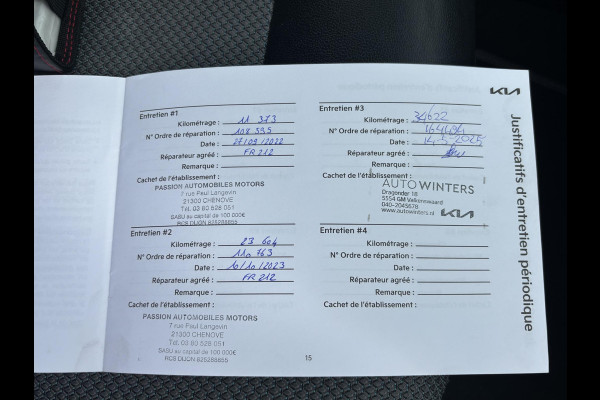 KIA
Justificatifs d'entretien périodique
Entretien #1
Kilométrage : 11 373
N° Ordre de réparation : 108 595
Date : 27/09/2022
Réparateur agréé : FR 212
Remarque :
Cachet de l'établissement :
PASSION AUTOMOBILES MOTORS
7 rue Paul Langevin
21300 CHENOVE
Tél. 03 80 528 051
SASU au capital de 100 000€
RCS DIJON 825288655
Entretien #2
Kilométrage : 23 604
N° Ordre de réparation : 110 763
Date : 10/10/2023
Réparateur agréé : FR 212
Remarque :
Cachet de l'établissement :
PASSION AUTOMOBILES MOTORS
7 rue Paul Langevin
21300 CHENOVE
Tél. 03 80 528 051
SASU au capital de 100 000€
RCS DIJON 825288655
Entretien #3
Kilométrage : 34622
N° Ordre de réparation : 164494
Date : 14-5-2025
Réparateur agréé :
Remarque :
Cachet de l'établissement :
AUTO WINTERS
Dragonder 18
5554 GM Valkenswaard
040-2045678
www.autowinters.nl KIA
Entretien #4
Kilométrage :
N° Ordre de réparation :
Date :
Réparateur agréé :
Remarque :
Cachet de l'établissement :
15